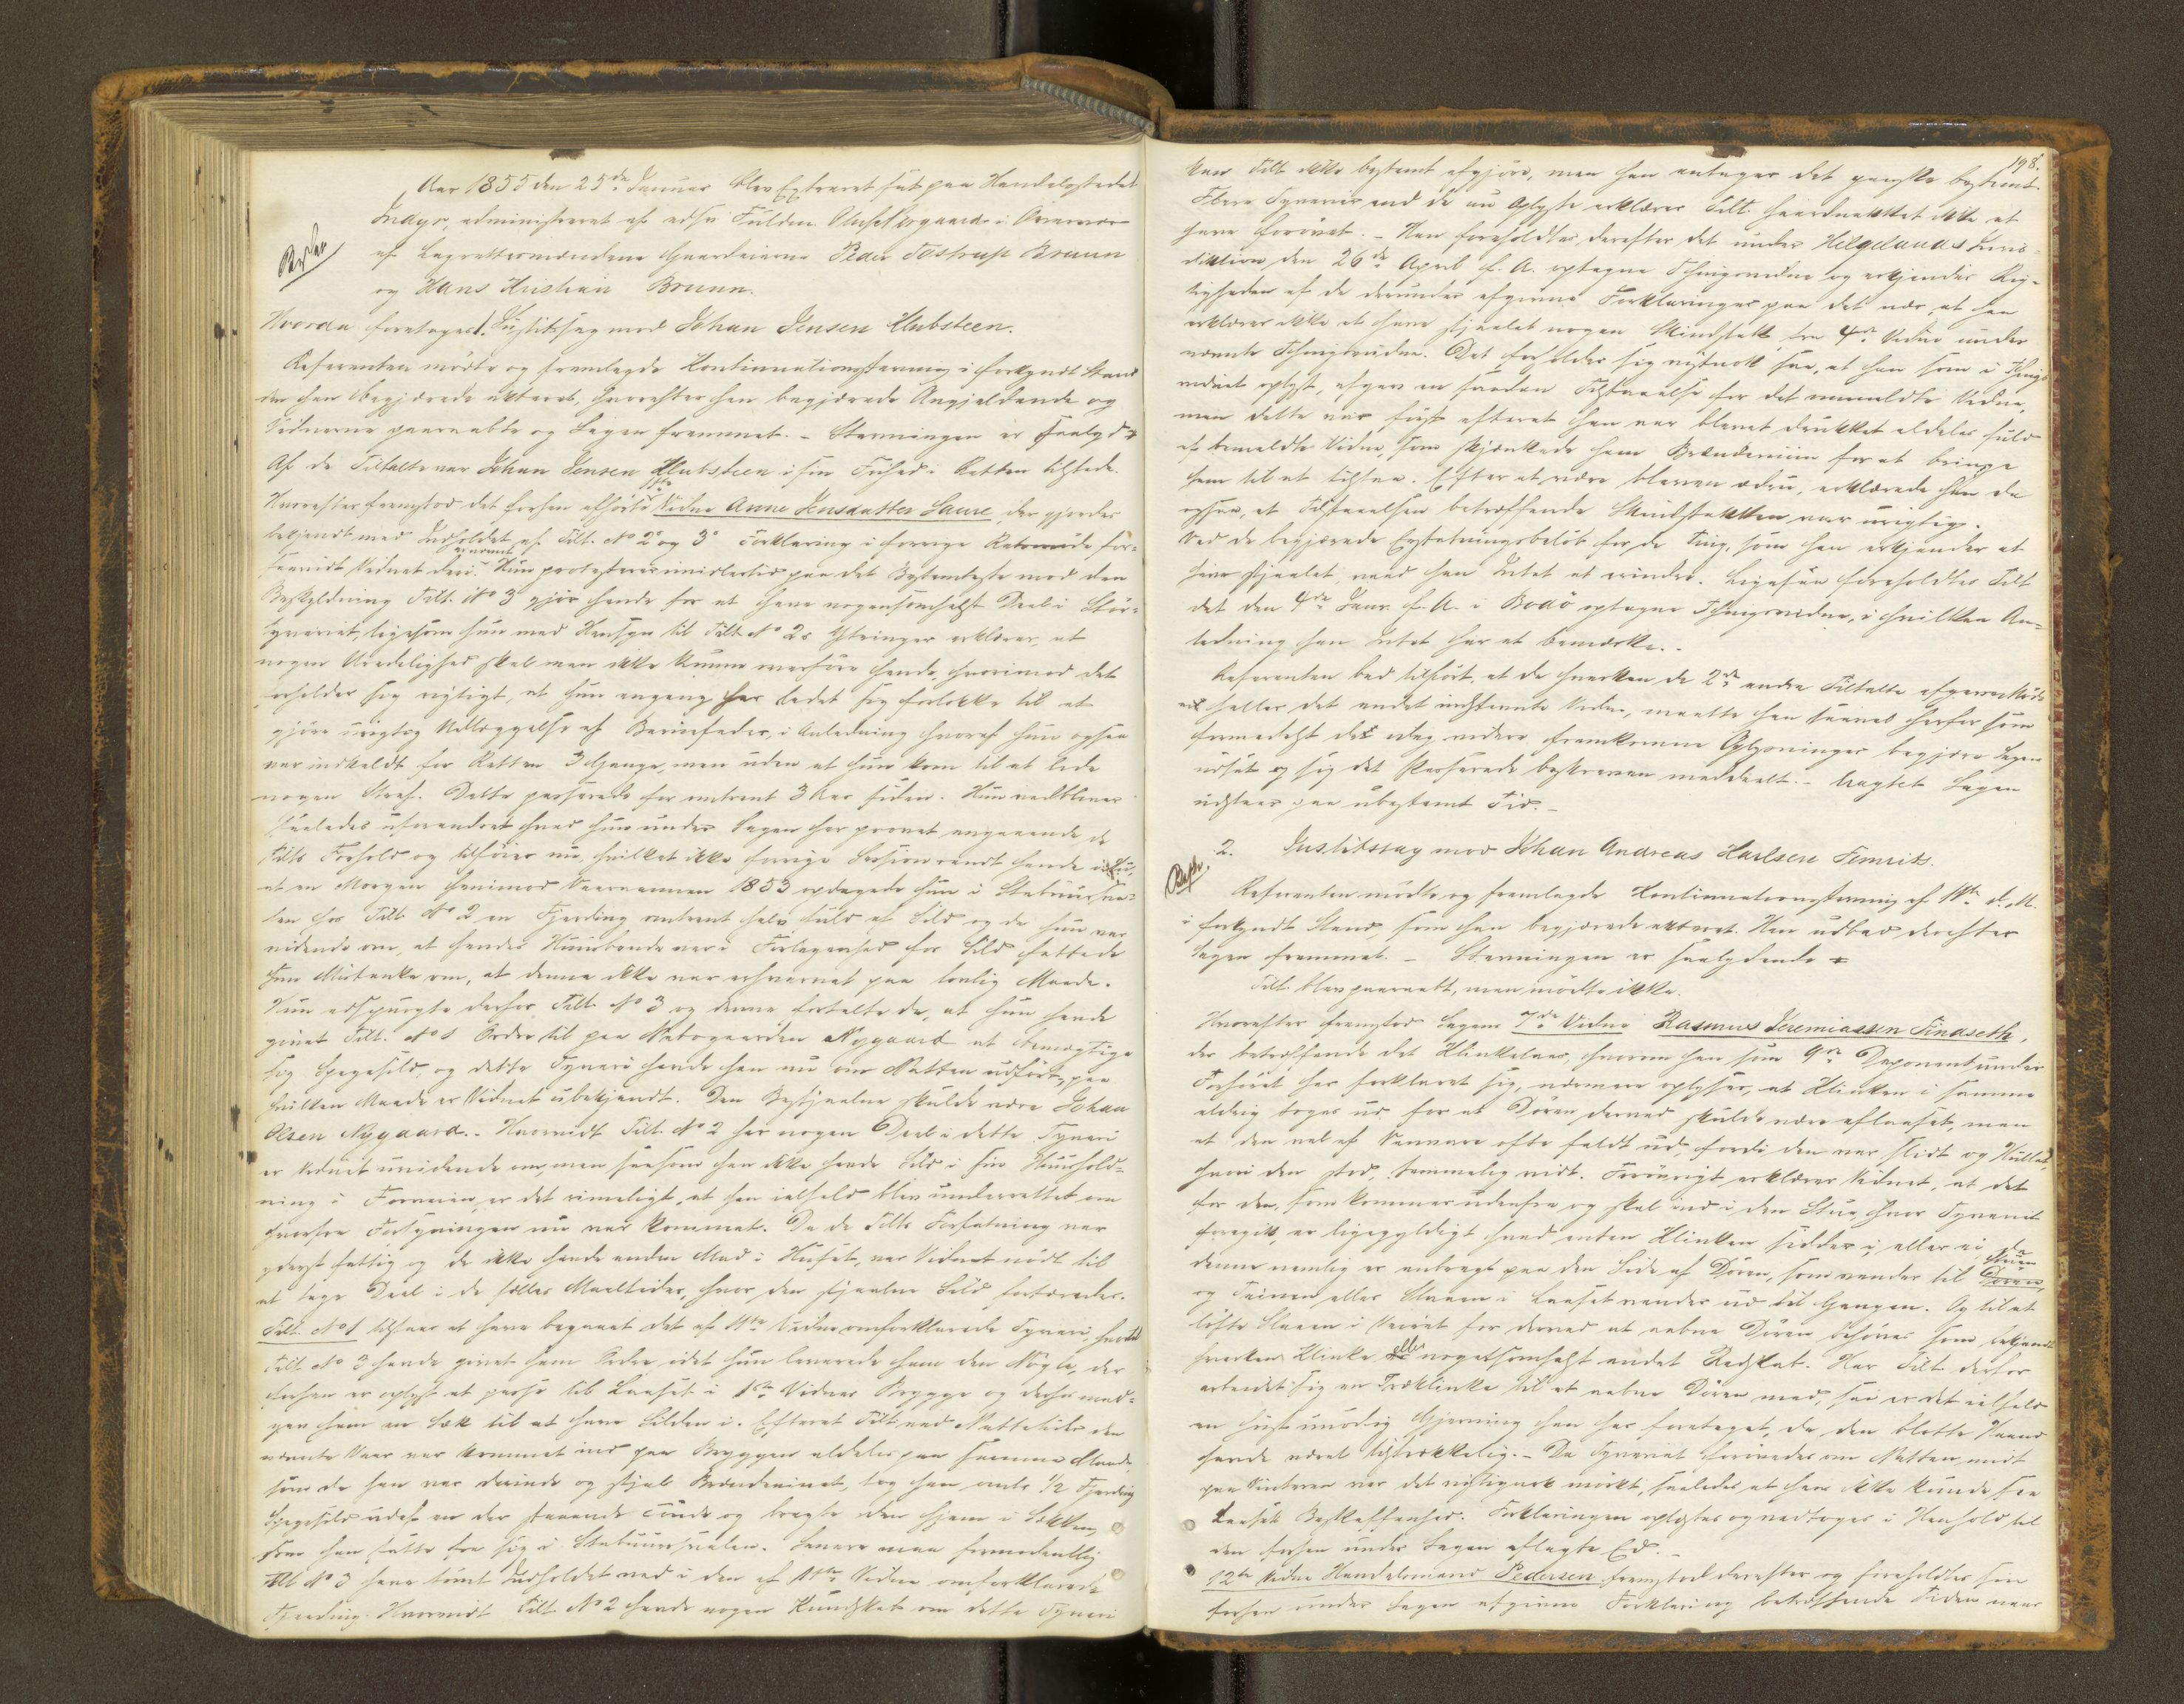 Aar 1855 den 25de Januar blev Extraret sat paa Handelsstedet
Indyr, administreret af edsv. Fuldm. Olus Norgaard i Overvær
af Lagrettesmændene Gaardeierne Peder Tostrup Bruun
og Hans Kristian Bruun.
Hvorda foretoges 1. Justitssag mod Johan Jensen Klubsteen.
Referenten mødte og fremlagde Kontinuationsstevning i forkyndt Stand
der han begjærede akteret, hvorefter han begjærede Angjældende og
Vidnerne paaraabte og Sagen fremmet. – Stevningen er saalyd
Af de Tiltalte var Johan Jensen Klubsteen i fri Frihed i Retten tilstede.
Hvorefter fremstod det forhen afhørte Vidne Anne Jensdatter Saure, der gjordes
bekjendt med Indholdet af Tilt. No 2s og 3s Forklaring i forrige Retsmøde for-
saavidt Vidnet deri nævnt. Hun protesterer imidlertid paa det Bestemteste mod den
Beskyldning Tilt. No 3 gjør hende for at have nogensomhelst Deel i Stør-
tyveriet, ligesom hun med Hensyn til Tilt. No 2s Ytringer erklærer, at
nogen Uredelighed skal man ikke kunne overføre hende, hvorimod det
forholder sig rigtigt, at hun engang har ladet sig forlokke til at
gjøre urigtig Udlæggelse af Barnefader, i Anledning hvoraf hun ogsaa
var indkaldt for Retten 3 Gange, men uden at hun kom til at lide
nogen Straf. Dette passerede for omtrent 3 Aar siden. Hun vedbliver
saaledes uforandret hvad hun under Sagen har provet angaaende de
Tilts Forhold og tilføier nu, hvilket ikke forrige Session randt hende i Hu,
at en Morgen henimod Vaaronnen 1853 opdagede hun i Stabuurssva-
len hos Tilt. No 2 en Fjerding omtrent halv fuld af Sild og da hun var
vidende om, at hendes Huusbonde var i Forlegenhed for Sild fattede
hun Mistanke om, at denne ikke var erhvervet paa lovlig Maade.
Hun adspurgte derfor Tilt. No 3 og denne fortalte da, at hun havde
givet Tilt. No 1 Ordre til paa Nabogaarden Nygaard at bemægtige
sig Spegesild, og dette Tyveri havde han nu om Natten udført, paa
hvilken Maade er Vidnet ubekjendt. Den Bestjaalne skulde være Johan
Olsen Nygaard. – Hvorvidt Tilt. No 2 har nogen Deel i dette Tyveri
er Vidnet uvidende om, men saasom han ikke havde Sild i sin Huushold-
ning i Forveien, er det rimeligt, at han ialfald blev underrettet om
hvorfra Forsyningen nu var kommet. Da de Tilts Forfatning var
yderst fattig og de ikke havde anden Mad i Huset, var Vidnet nødt til
at tage Deel i de fælles Maaltider, hvor den stjaalne Sild fortæredes.
Tilt. No 1 tilstaaer at have begaaet det af 11te Vidne omforklarede Tyveri, hvortil
Tilt. No 3 havde givet ham Ordre, idet hun leverede ham den Nøgle, der
forhen er oplyst at passe til Laaset i 1ste Vidnes Brygge og derhos med-
gav ham en Sæk til at have Silden i. Efterat Tilt. ved Nattetider den
nævnte Vaar var kommet ind paa Bryggen aldeles paa samme Maade,
som da han var derinde og stjal Brændevinet, tog han omtr. 1/2 Fjerding
Spegesild udaf en der staaende Tønde og bragte den hjem i Sækken,
som han satte fra sig i Stabuurssvalen. Senere maa formodentlig
Tilt No 3 have tømt Indholdet ned i den af 11te Vidne omforklarede
Fjerding. Hvorvidt Tilt. No 2 havde nogen Kundskab om dette Tyveri
198.
kan Tilt. ikke bestemt afgjøre, men han antager det ganske bestemt.
Flere Tyverier end de nu oplyste erklærer Tilt. haardnakket ikke at
have forøvet. – Han foreholdtes derefter det under Helgelands Juris-
diktion den 26de April f. A. optagne Thingsvidne og erkjender Rig-
tigheden af de derunder afgivne Forklaringer paa det nær, at han
erklærer ikke at have stjaalet nogen Skindstak fra 4de Vidne under
nævnte Thingsvidne. Det forholder sig vistnok saa, at han som i Things-
vidnet oplyst, afgav en saadan Tilstaaelse for det anmeldte Vidne,
men dette var først efterat han var blevet drukket aldeles fuld
af bemeldte Vidne, som skjænkede ham Brændeviin for at bringe
ham til at tilstaa. Efter at være bleven ædru, erklærede han da
ogsaa, at Tilstaaelsen betræffende Skindstakken var urigtig.
Ved de begjærede Erstatningsbeløb for de Ting, som han erkjender at
have stjaalet, veed han Intet at erindre. Ligesaa foreholdtes Tilt
det den 4de Janr. f. A. i Bodø optagne Thingsvidne, i hvilken An-
ledning han Intet har at bemærke. –
Referenten bad tilført, at da hverken de 2de andre Tiltalte afgav Møde
ei heller det andet indstevnte Vidne, maatte han saavel herfor som
formedelst de idag videre fremkomne Oplysninger begjære Sagen
udsat og sig det Passerede beskreven meddeelt. – Eragtet Sagen
udstaar paa ubestemt Tid. –
2. Justitssag mod Johan Andreas Karlsen Femrits.
Referenten mødte og fremlagde Kontinuationsstevning af 11te d. M.
i forkyndt Stand, som han begjærede akteret. Han udbad derefter
Sagen fremmet. – Stevningen er saalydende
Tilt. blev paaraabt, men mødte ikke.
Hvorefter fremstod Sagens 7de Vidne Rasmus Jeremiassen Sindseth,
der betræffende det Klinkelaas, hvorom han som 9de Deponent under
Forhøret har forklaret sig, nærmere oplyser, at Klinken i samme
aldrig toges ud for at Døren derved skulde være aflaaset, men
at den vel af Vanvare ofte faldt ud, fordi den var slidt og Hullet,
hvori den stod, temmelig vidt. Forøvrigt erklærer Vidnet, at det
for den, som kommer udenfra og skal ind i den Stue, hvor Tyveriet
foregik, er ligegyldigt hvad enten Klinken sidder i, eller ei, da
denne nemlig er anbragt paa den Side af Døren, som vender til Stuen
og Skiven eller Skruen i Laaset vender ud til Gangen. Og til at
løfte Klinken i Veiret for derved at aabne Døren behøves som bekjendt
hverken Klinke eller nogetsomhelst andet Redskab. Har Tilt. derfor
arbeidet sig en Træklinke til at aabne Døren med, saa er det ialfald
en høist unødig Gjerning han har foretaget, da den blotte Haand
havde været tilstrækkelig. – Da Tyveriet forøvedes om Natten midt
paa Vinteren var det vistnok mørkt, saaledes at han ikke kunde see
Laasets Beskaffenhed. Forklaringen oplæstes og vedtoges i Henhold til
den forhen under Sagen aflagte Ed. –
12te Vidne Handelsmand Pedersen fremstod derefter og foreholdtes sin
forhen under Sagen afgivne Forklaring betræffende Tiden naar